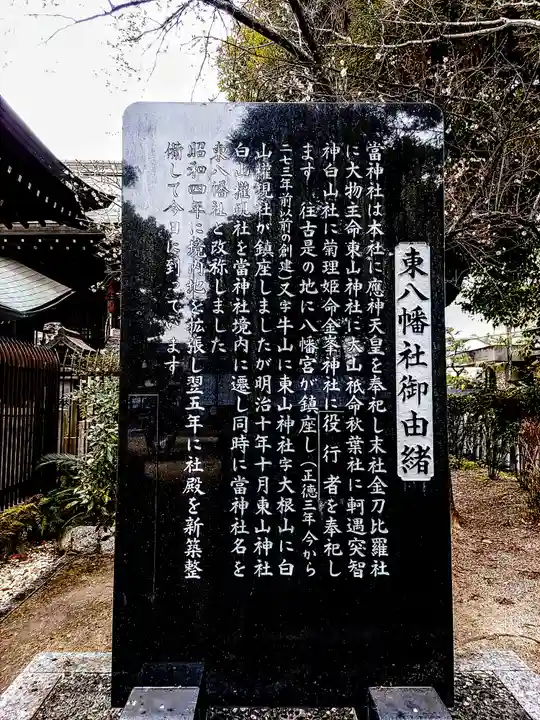 東八幡社御由緒
當神社は本社に應神天皇を奉祀し末社金刀比羅社
に大物主命東山神社に大山祇命秋葉社に軻遇突智
神白山社に菊理姫命金峯神社に役行者を奉祀し
ます 往古是の地に八幡宮が鎮座し(正徳三年今から
二七三年前以前の創建)又字牛山に東山神社字大根山に白
山権現社が鎮座しましたが明治十年十月東山神社
白山権現社を當神社境内に遷し同時に當神社名を
東八幡社と改称しました
昭和四年に境内地を拡張し翌五年に社殿を新築整
備して今日に到つています